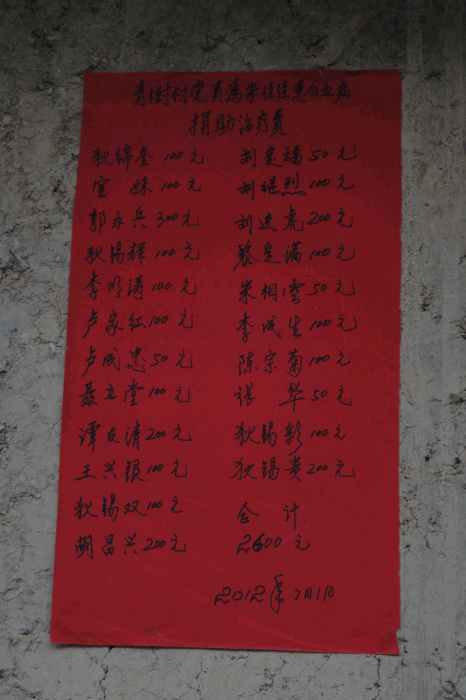 青树村党员为朱佳佳患白血病
捐助治疗费
狄绵奎 100元
妹 100元
郭永兵 300元
狄锡辉 100元
李明涛 100元
卢家红 100元
卢成忠 50元
聂立堂 100元
谭友清 200元
王兴银 100元
狄锡双 100元
胡昌兴 200元
刘定福 50元
刘继烈 100元
刘建虎 200元
黎定满 100元
朱相云 50元
李成生 100元
陈宗菊 100元
张华 50元
狄锡彩 100元
狄锡贵 200元
合计:
2600元
2012年7月1日